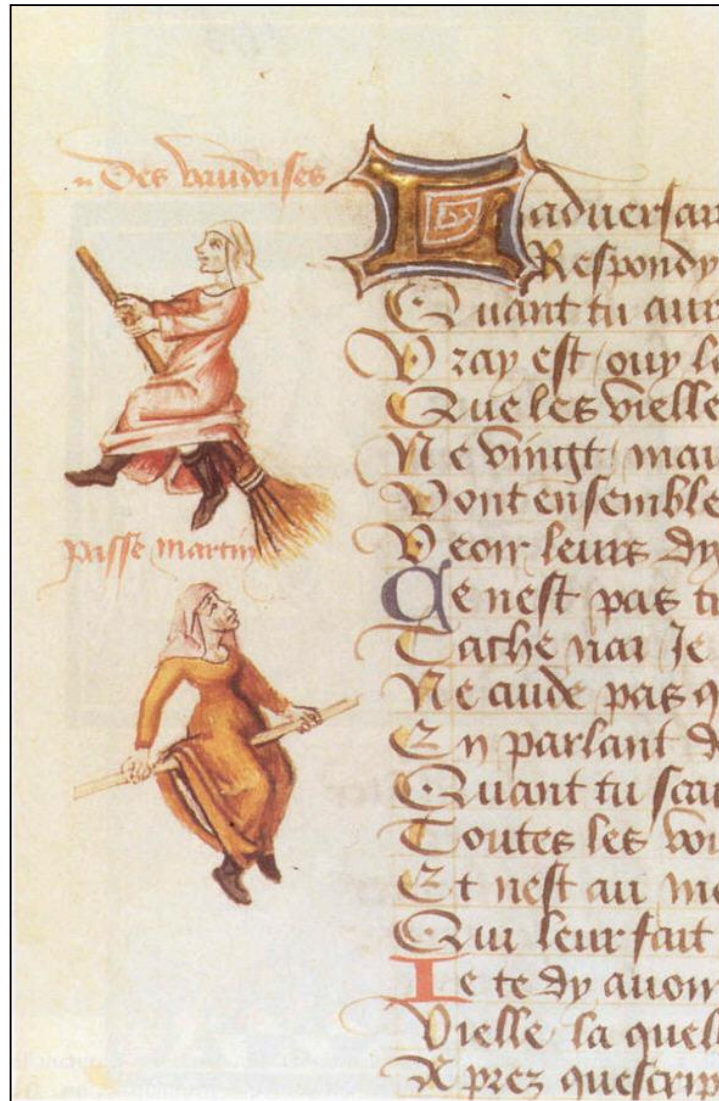 Des vaudoises
passe martin
Ladversai
Respondy
Quant tu aura
Vray est / ouy le
Que les vielle
Ne vingt / mai
Vont ensemble
Veoir leurs dy
Ce nest pas tr
Tache nai Je
Ne cude pas q
En parlant d
Quant tu scau
Toutes les voi
Et nest au mo
Qui leur fait
Ie te dy avoir
Vielle la quell
Aprez quescrip